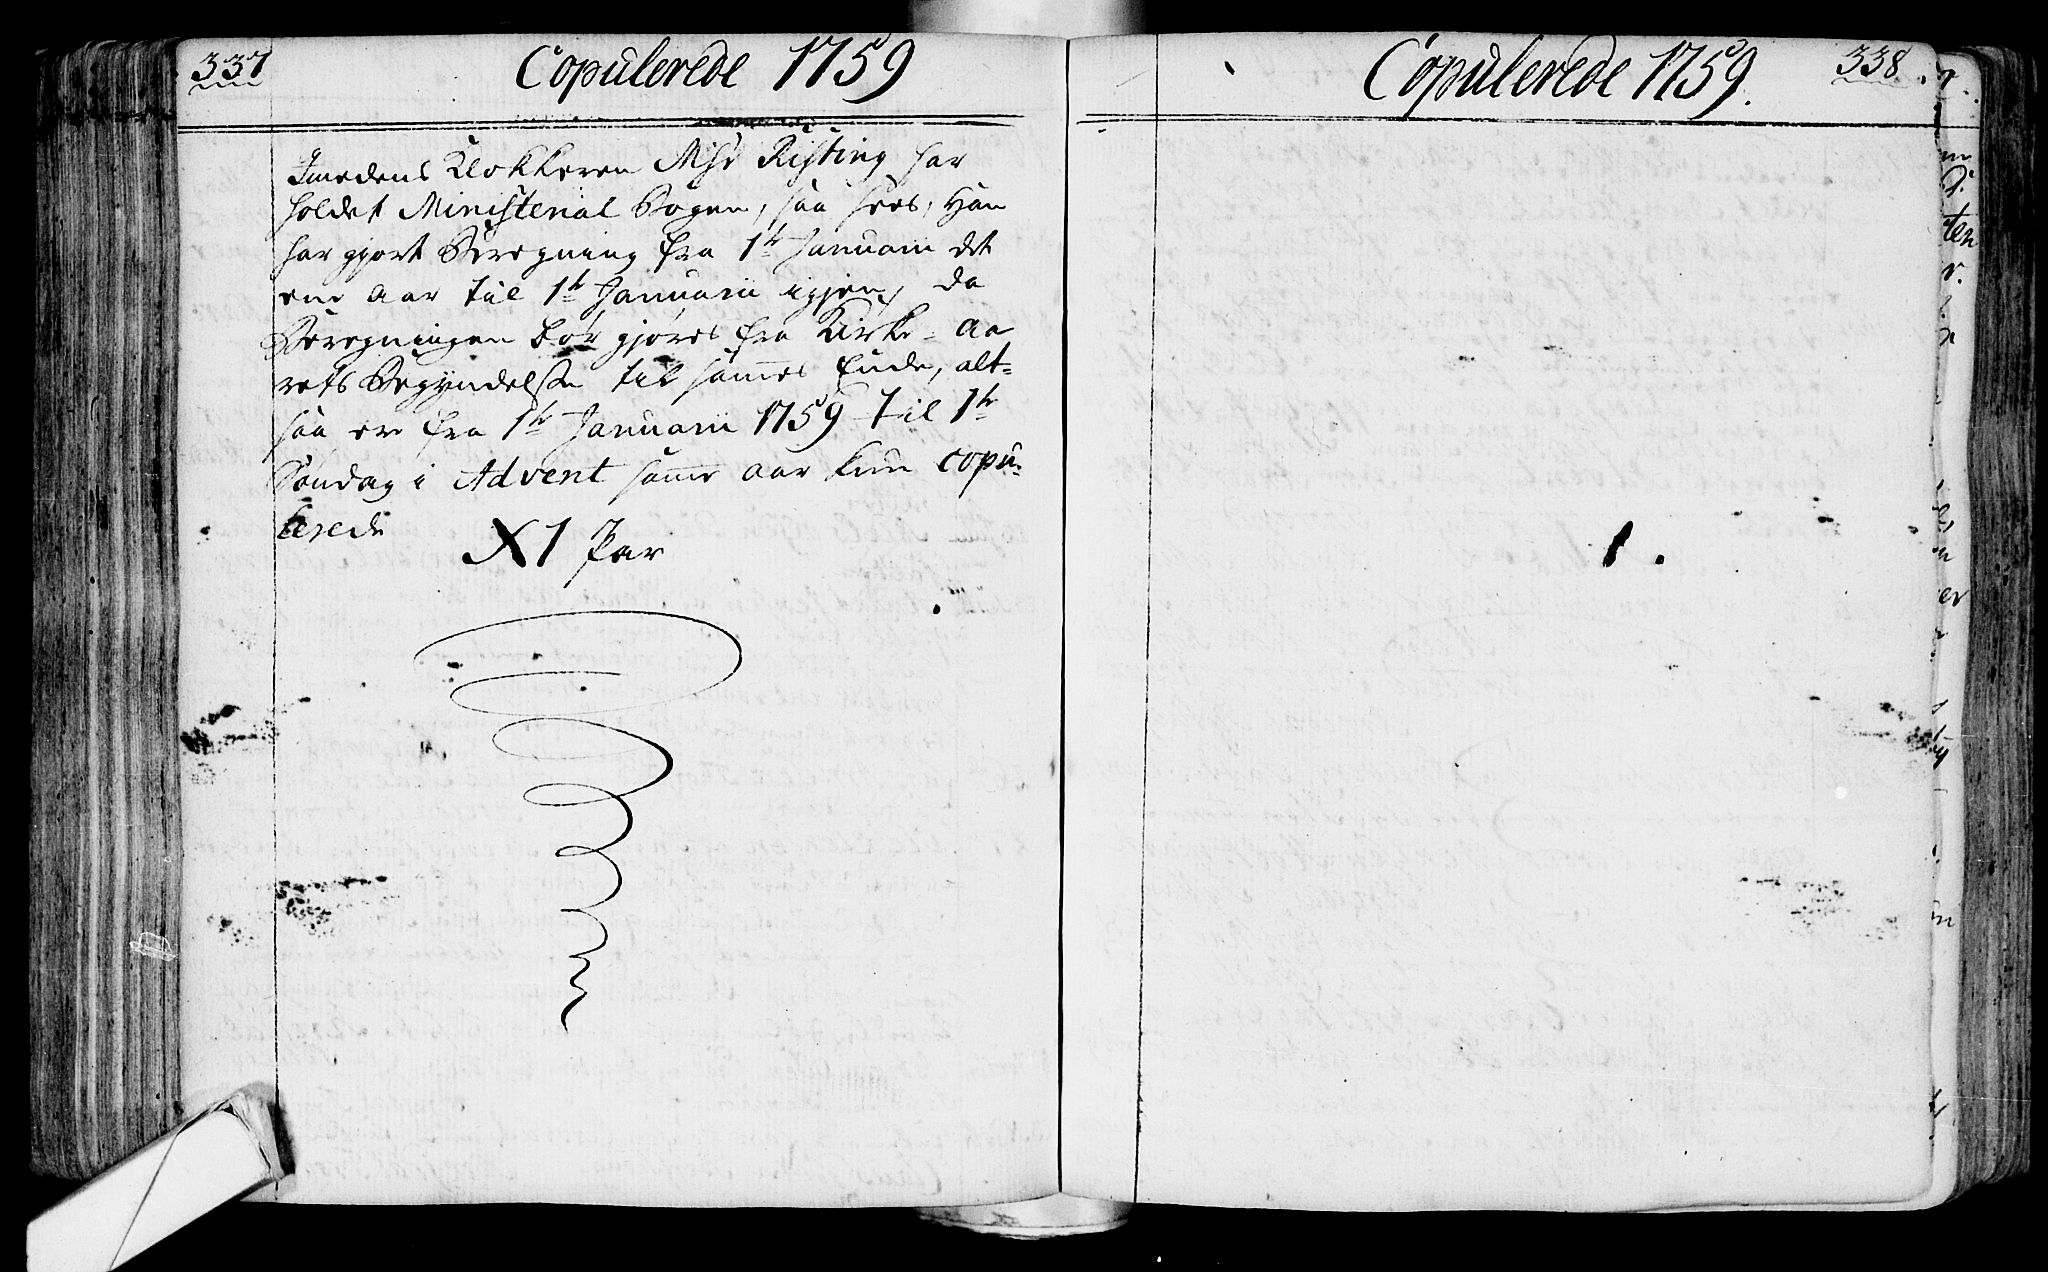 337
Copulerede 1759
Imedens Klokkeren Msr Risting har
holdet Ministerial Bogen, saa sees, Han
har gjort Beregning fra 1te Januarii det
ene Aar til 1te Januarii igjen, da
Beregningen bør gjøres fra Kirke-Aa
rets Begyndelse til sammes Ende, alt=
saa ere fra 1te Januarii 1759 Til 1te
Søndag i Advent samme aar kun copu=
lerede
XI Par
Copulerede 1759.
338